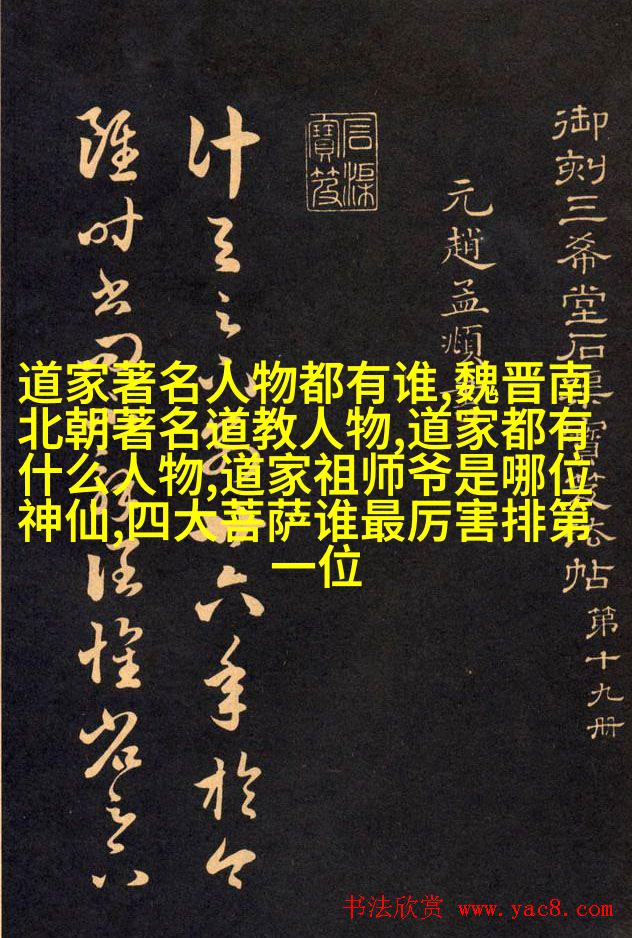 御刻三希堂石渠寶笈法帖 第十九册
元趙孟頫
石渠寶笈
計與足下別廿六年於今
雖時書問不解闊懷省足下
道家著名人物都有谁,魏晋南
北朝著名道教人物,道家都有
什么人物,道家祖师爷是哪位
神仙,四大菩萨谁最厉害排第
一位
书法欣赏 www.yac8.com